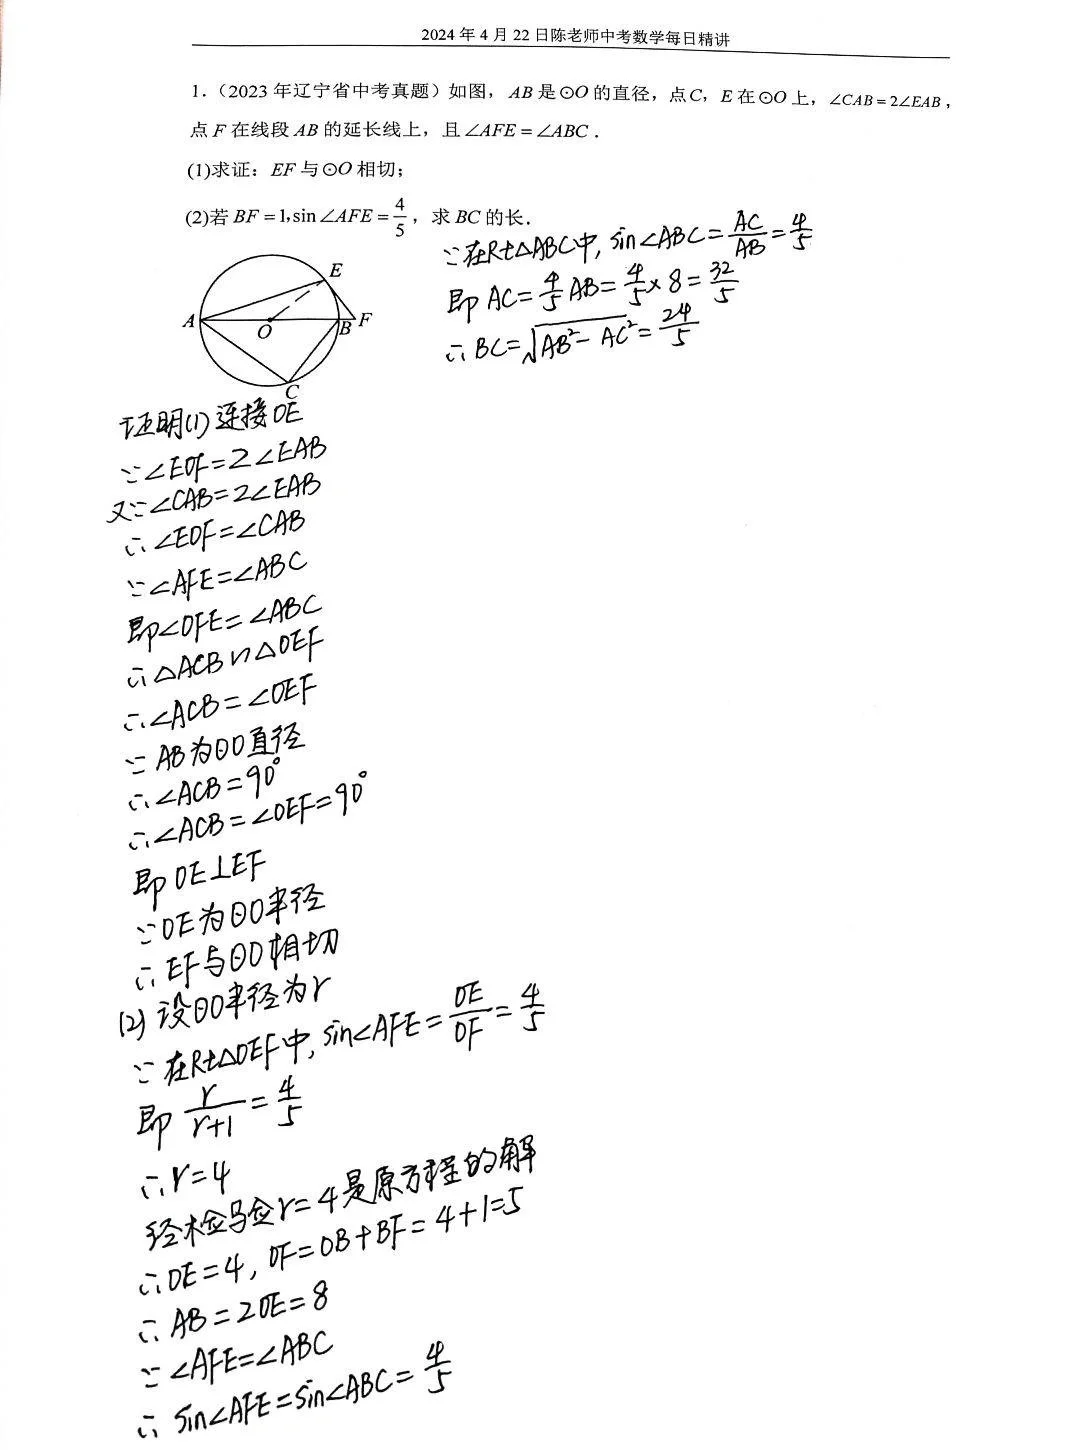 2024年4月22日陈老师中考数学每日精讲
1.（2023年辽宁省中考真题）如图，AB是⊙O的直径，点C，E在⊙O上，∠CAB=2∠EAB，
点F在线段AB的延长线上，且∠AFE=∠ABC．
(1)求证：EF与⊙O相切；
(2)若BF=1，sin∠AFE=4/5，求BC的长．
∵在Rt△ABC中, sin∠ABC=AC/AB=4/5
即 AC=4/5AB=4/5×8=32/5
∴BC=√(AB²-AC²)=24/5
E
A
O
B
F
C
证明(1)连接OE
∵∠EOF=2∠EAB
又∵∠CAB=2∠EAB
∴∠EOF=∠CAB
∵∠AFE=∠ABC
即∠OFE=∠ABC
∴△ACB∽△OEF
∴∠ACB=∠OEF
∵AB为⊙O直径
∴∠ACB=90°
∴∠ACB=∠OEF=90°
即OE⊥EF
∵OE为⊙O半径
∴EF与⊙O相切
(2)设⊙O半径为r
∵在Rt△OEF中, sin∠AFE=OE/OF=4/5
即 r/(r+1)=4/5
∴r=4
经检验r=4是原方程的解
∴OE=4, OF=OB+BF=4+1=5
∴AB=2OE=8
∵∠AFE=∠ABC
∴sin∠AFE=sin∠ABC=4/5